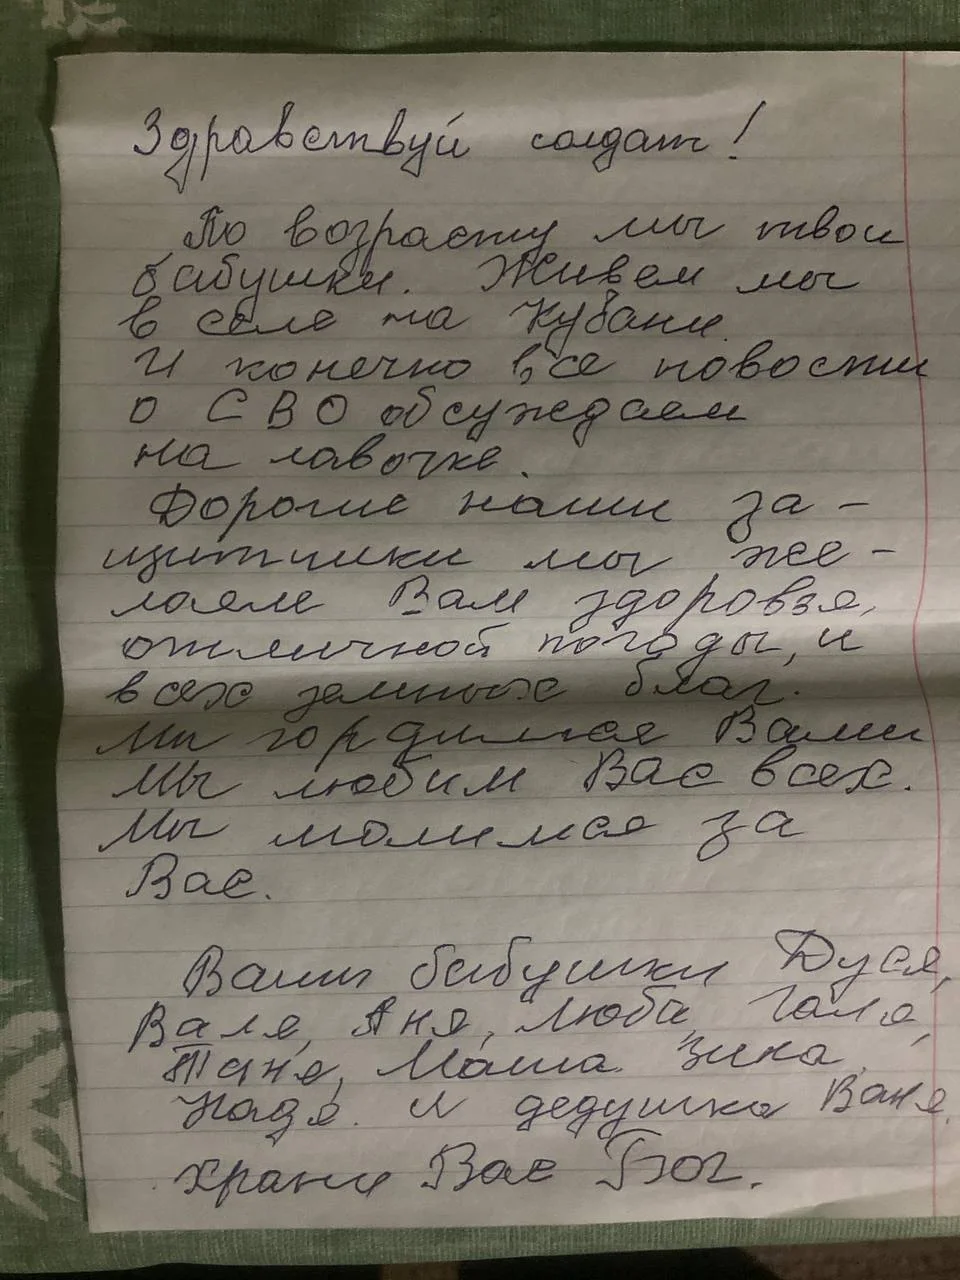 Здравствуй солдат!
По возрасту мы твои
бабушки. Живем мы
в селе на Кубани.
И конечно все новости
о СВО обсуждаем
на лавочке.
Дорогие наши за-
щитники мы же-
лаем Вам здоровья,
отличной погоды, и
всех земных благ.
Мы гордимся Вами
Мы любим Вас всех.
Мы молимся за
Вас.
Ваши бабушки Дуся,
Валя, Аня, Люба, Галя,
Таня, Маша. Зина,
Надя. и дедушка Ваня.
Храни Вас Бог.